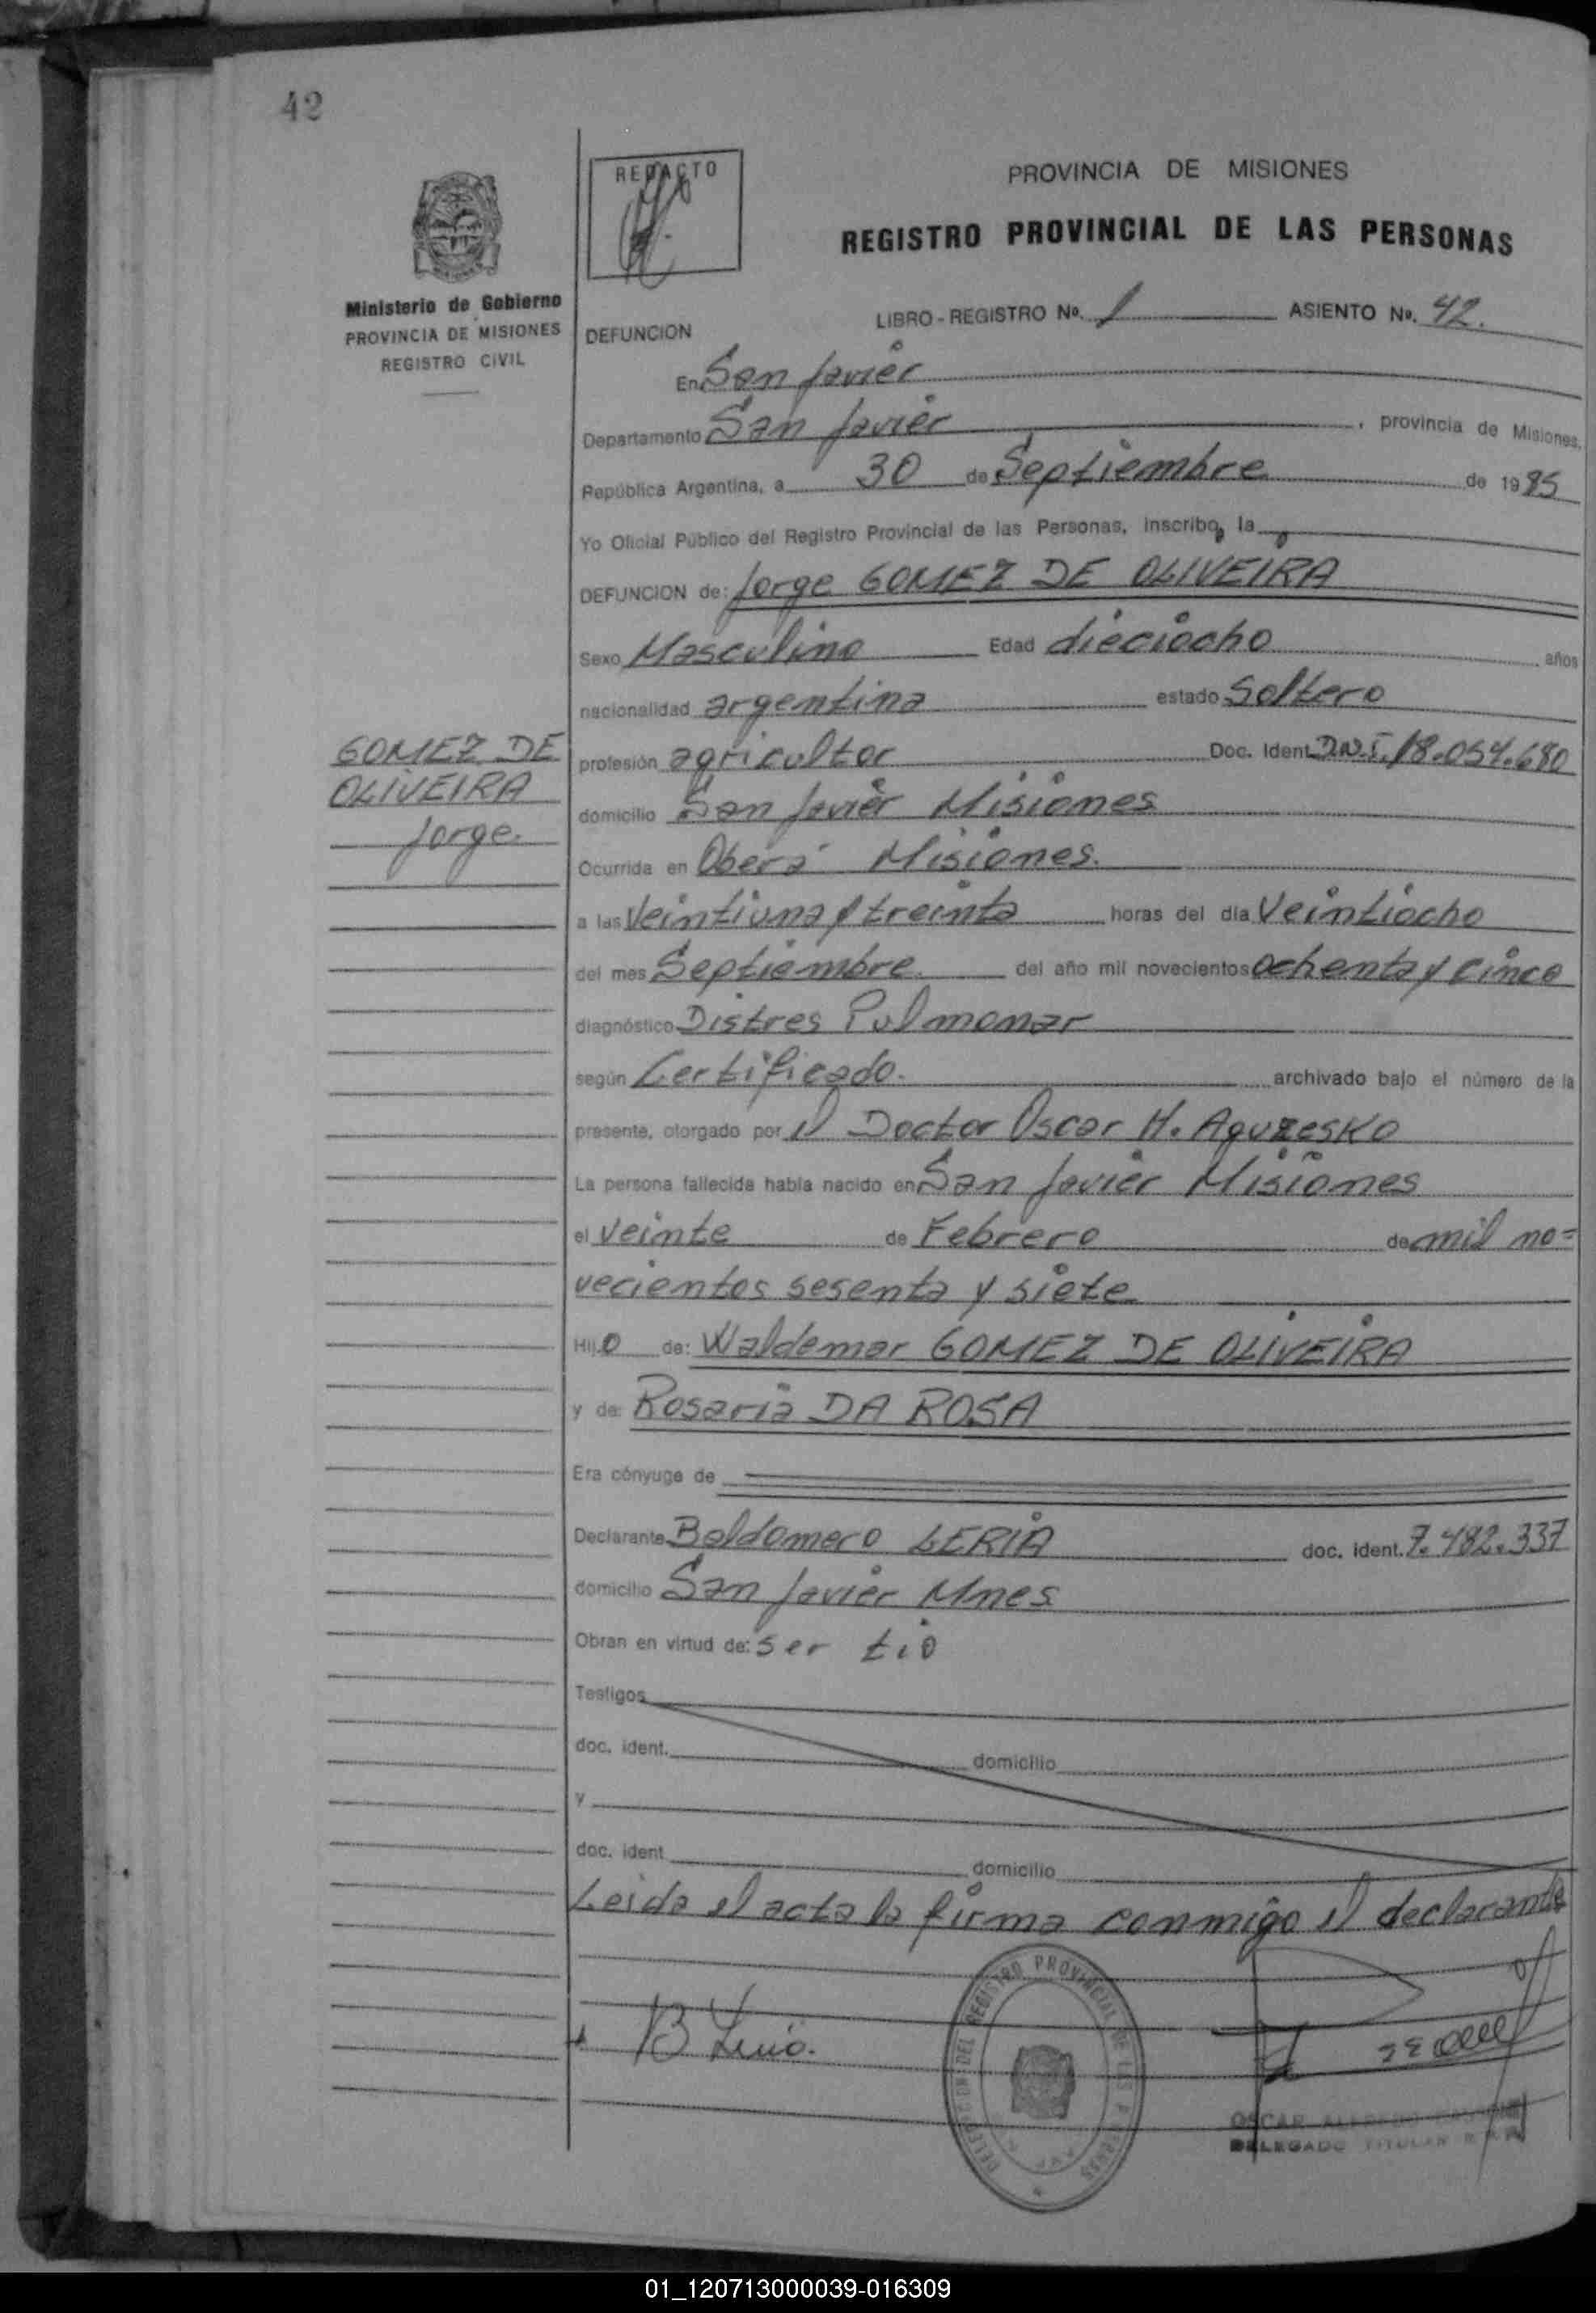 42
REDACTO
PROVINCIA DE MISIONES
REGISTRO PROVINCIAL DE LAS PERSONAS
Ministerio de Gobierno
PROVINCIA DE MISIONES
REGISTRO CIVIL
DEFUNCION
LIBRO - REGISTRO No. 1 ASIENTO No. 42.
En San Javier
Departamento San Javier, provincia de Misiones,
República Argentina, a 30 de Septiembre de 1985
Yo Oficial Público del Registro Provincial de las Personas, inscribo, la
DEFUNCION de: Jorge GOMEZ DE OLIVEIRA
Sexo Masculino Edad dieciocho años
nacionalidad argentina estado Soltero
GOMEZ DE
OLIVEIRA
Jorge.
profesión agricultor Doc. Ident. D.N.I. 18.054.680
domicilio San Javier Misiones
Ocurrida en Oberá Misiones.
a las Veintiuna y treinta horas del día Veintiocho
del mes Septiembre. del año mil novecientos ochenta y cinco
diagnóstico Distres Pulmonar
según Certificado. archivado bajo el número de la
presente, otorgado por el Doctor Oscar H. Aguzesko
La persona fallecida había nacido en San Javier Misiones
el veinte de Febrero de mil no=
vecientos sesenta y siete
Hijo de: Waldemar GOMEZ DE OLIVEIRA
y de: Rosaria DA ROSA
Era cónyuge de
Declarante Baldomero LERIA doc. ident. 7.482.337
domicilio San Javier Mnes
Obran en virtud de: ser tio
Testigos
doc. ident. domicilio
y
doc. ident domicilio
Leida el acta la firma conmigo el declarante
DELEGACION DEL REGISTRO PROVINCIAL DE LAS PERSONAS
OSCAR ALFREDO
DELEGADO TITULAR R.P.P.
01_120713000039-016309